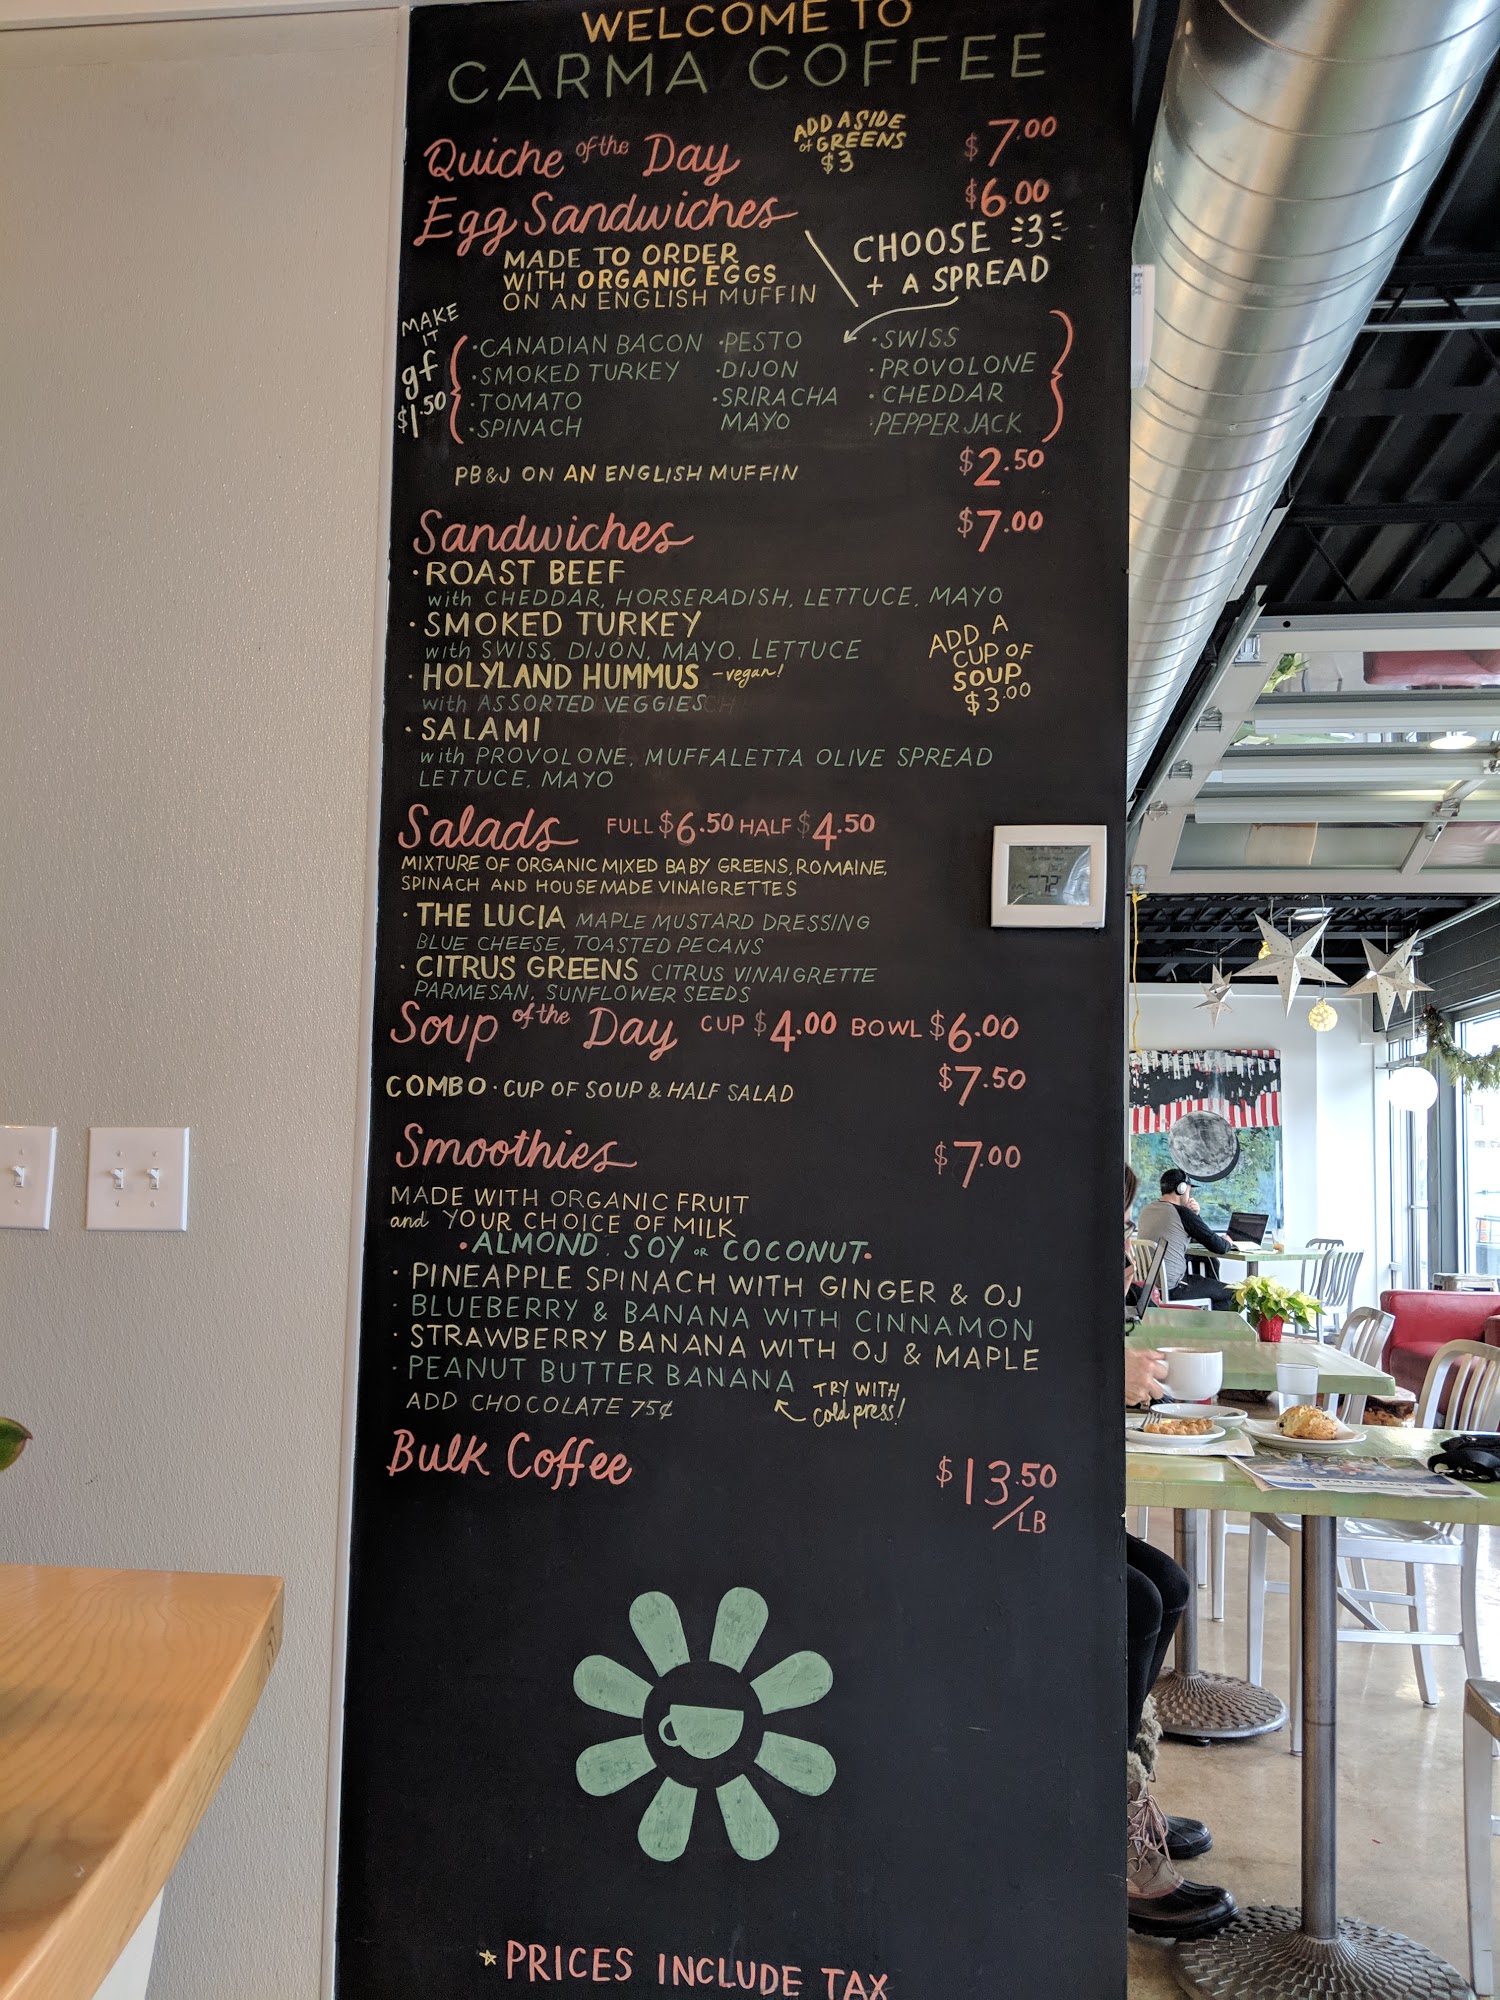 WELCOME TO
CARMA COFFEE
Quiche of the Day
ADD A SIDE
of GREENS
$3
$7.00
Egg Sandwiches
$6.00
MADE TO ORDER
WITH ORGANIC EGGS
ON AN ENGLISH MUFFIN
CHOOSE 3
+ A SPREAD
MAKE
IT
gf
$1.50
•CANADIAN BACON •PESTO •SWISS
•SMOKED TURKEY •DIJON •PROVOLONE
•TOMATO •SRIRACHA •CHEDDAR
•SPINACH MAYO •PEPPER JACK
PB&J ON AN ENGLISH MUFFIN $2.50
Sandwiches $7.00
•ROAST BEEF
with CHEDDAR, HORSERADISH, LETTUCE, MAYO
•SMOKED TURKEY
with SWISS, DIJON, MAYO, LETTUCE
•HOLYLAND HUMMUS -vegan!
with ASSORTED VEGGIES
ADD A
CUP OF
SOUP
$3.00
•SALAMI
with PROVOLONE, MUFFALETTA OLIVE SPREAD
LETTUCE, MAYO
Salads FULL $6.50 HALF $4.50
MIXTURE OF ORGANIC MIXED BABY GREENS, ROMAINE,
SPINACH AND HOUSEMADE VINAIGRETTES
•THE LUCIA MAPLE MUSTARD DRESSING
BLUE CHEESE, TOASTED PECANS
•CITRUS GREENS CITRUS VINAIGRETTE
PARMESAN, SUNFLOWER SEEDS
Soup of the Day CUP $4.00 BOWL $6.00
COMBO • CUP OF SOUP & HALF SALAD $7.50
Smoothies $7.00
MADE WITH ORGANIC FRUIT
and YOUR CHOICE OF MILK
•ALMOND. SOY OR COCONUT•
•PINEAPPLE SPINACH WITH GINGER & OJ
•BLUEBERRY & BANANA WITH CINNAMON
•STRAWBERRY BANANA WITH OJ & MAPLE
•PEANUT BUTTER BANANA
TRY WITH
cold press!
ADD CHOCOLATE 75¢
Bulk Coffee $13.50
/LB
*PRICES INCLUDE TAX
72